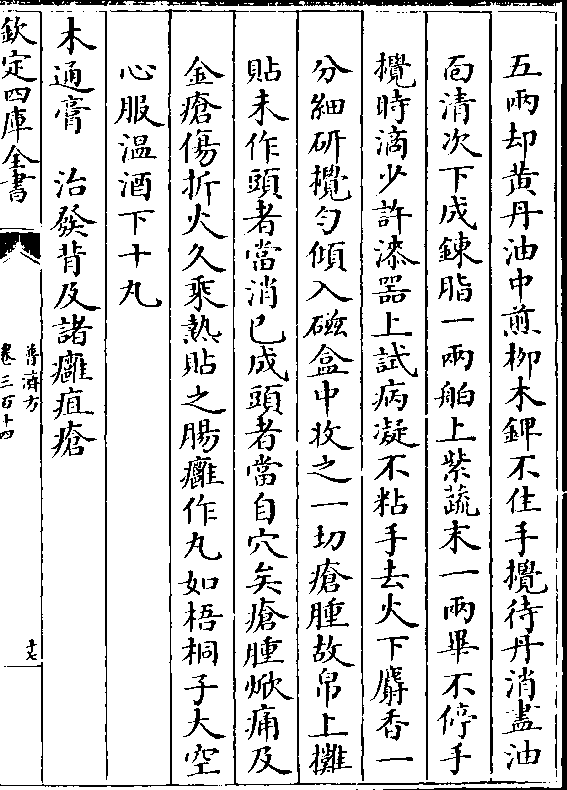 五兩却黄丹油中煎柳木鎞不住手攪待丹消盡油
面清次下成鍊脂一兩舶上紫蔬末一兩畢不停手
攪時滴少許漆器上試病凝不粘手去火下麝香一
分細研攪匀傾入磁盒中收之一切瘡腫故帛上攤
貼未作頭者當消已成頭者當自穴矣瘡腫焮痛及
金瘡傷折火久乘熱貼之腸癰作丸如梧桐子大空
心服温酒下十丸
木通膏 治發背及諸癰疽瘡
欽定四庫全書
普濟方
卷三百十四